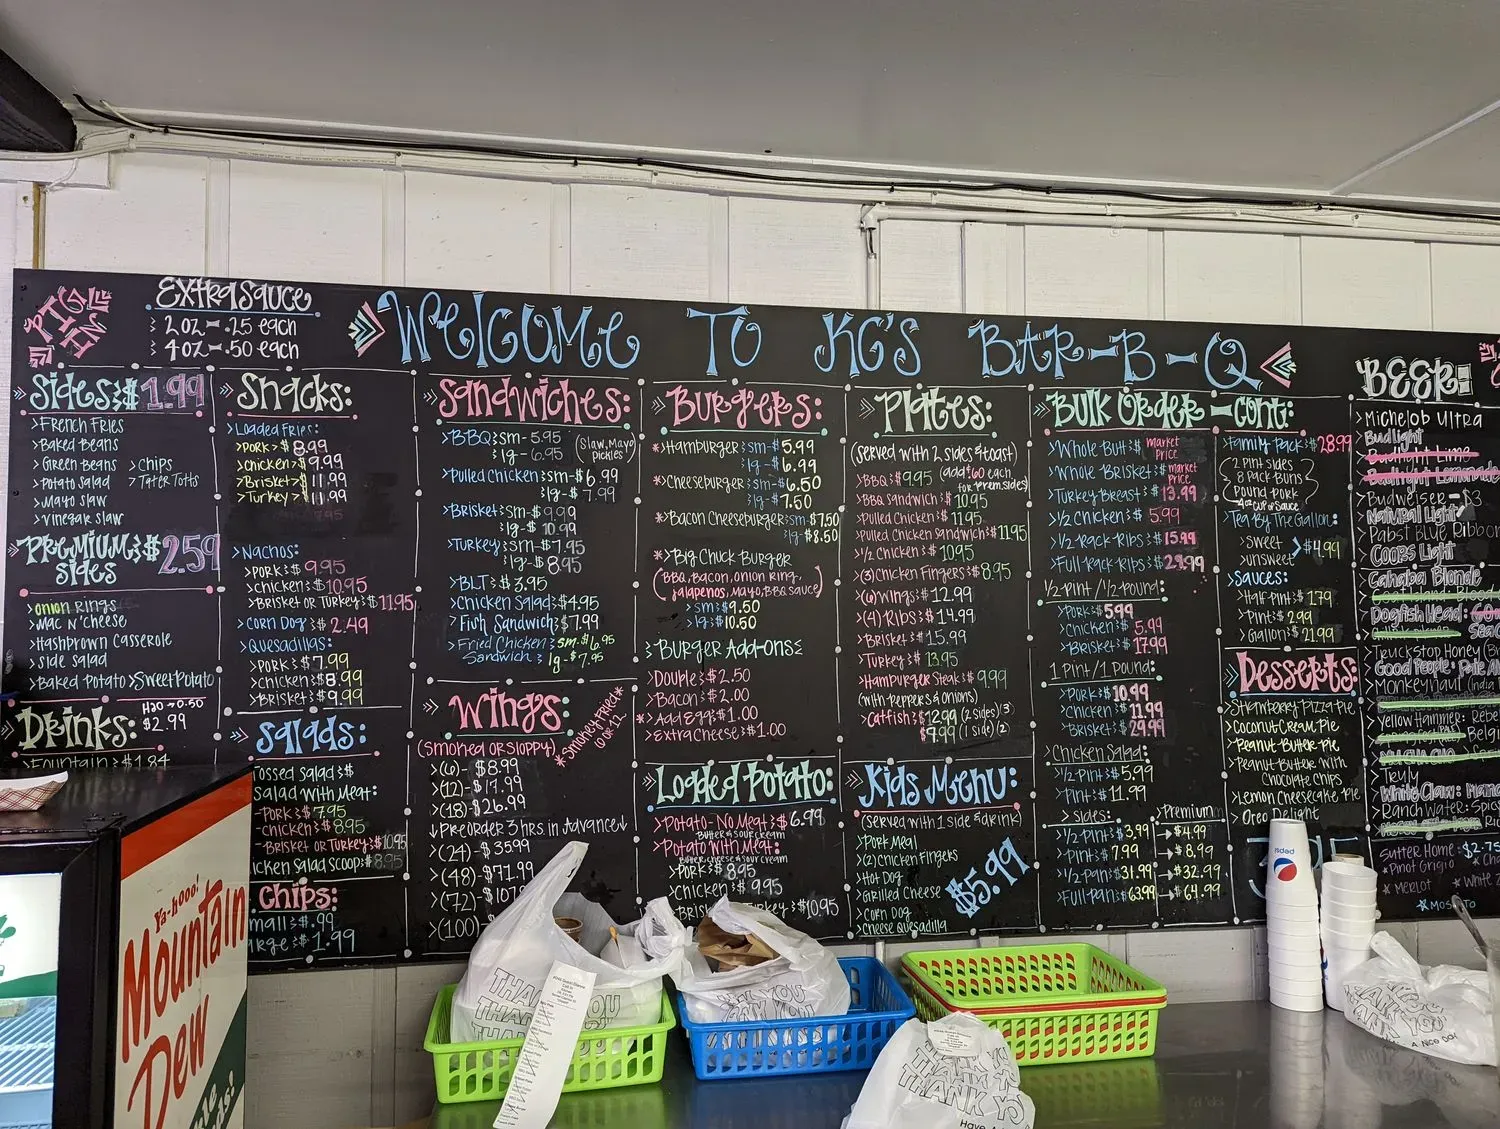 PIGS
EXTRA SAUCE
2 oz - .25 each
4 oz - .50 each
WELCOME TO KG'S BAR-B-Q
Sides: $1.99
>French Fries
>Baked Beans
>Green Beans >Chips
>Potato Salad >Tater Totts
>Mayo Slaw
>Vinegar Slaw
Premium: $2.59
Sides
>Onion Rings
>Mac n' Cheese
>Hashbrown Casserole
>Side Salad
>Baked Potato >Sweet Potato
Drinks: H2O → 0.50
$2.99
>Fountain: $1.84
Snacks:
>Loaded Fries:
>Pork > $8.99
>Chicken > $9.99
>Brisket > $11.99
>Turkey > $11.99
>Nachos:
>Pork: $9.95
>Chicken: $10.95
>Brisket or Turkey: $11.95
>Corn Dog: $2.49
>Quesadillas:
>Pork: $7.99
>Chicken: $8.99
>Brisket: $9.99
Salads:
Tossed Salad: $
Salad with Meat:
-Pork: $7.95
-Chicken: $8.95
-Brisket or Turkey: $10.95
Chicken Salad Scoop: $8.95
Chips:
Small: $.99
Large: $1.99
Sandwiches:
>BBQ: sm- 5.95 (Slaw, Mayo,
lg - 6.95 pickles)
>Pulled Chicken: sm- $6.99
lg- $7.99
>Brisket: sm- $9.99
lg- $10.99
>Turkey: sm- $7.95
lg- $8.95
>BLT: $3.95
>Chicken Salad: $4.95
>Fish Sandwich: $7.99
>Fried Chicken sm- $6.95
Sandwich : lg- $7.95
Wings:
(Smoked or Sloppy)
*Smoked/Fried*
10 or 12
>(6)- $8.99
>(12)- $14.99
>(18)- $26.99
↓Preorder 3 hrs. in Advance↓
>(24)- $35.99
>(48)- $71.99
>(72)- $107.
>(100)-
Burgers:
*>Hamburger: sm- $5.99
lg - $6.99
*>Cheeseburger: sm- $6.50
lg- $7.50
*>Bacon Cheeseburger: sm- $7.50
lg- $8.50
*>Big Chuck Burger
(BBQ, Bacon, Onion Ring,
Jalapenos, Mayo, BBQ Sauce)
>sm: $9.50
>lg: $10.50
Burger Add-Ons
>Double: $2.50
>Bacon: $2.00
*>Add Egg: $1.00
>Extra Cheese: $1.00
Loaded Potato:
>Potato-No Meat: $6.99
Butter & Sour Cream
>Potato With Meat:
Butter, Cheese & Sour Cream
>Pork: $8.95
>Chicken: $9.95
>Brisket Turkey: $10.95
Plates:
(Served with 2 sides & toast)
>BBQ: $9.95 (add $.60 each for prem. sides)
>BBQ Sandwich: $10.95
>Pulled Chicken: $11.95
>Pulled Chicken Sandwich: $11.95
>1/2 Chicken: $10.95
>(3) Chicken Fingers: $8.95
>(6) Wings: $12.99
>(4) Ribs: $14.99
>Brisket: $15.99
>Turkey: $13.95
>Hamburger Steak: $9.99
(with peppers & onions)
>Catfish: $12.99 (2 sides) (3)
$9.99 (1 side) (2)
Kids Menu:
(Served with 1 side & drink)
>Pork Meal
>(2) Chicken Fingers
>Hot Dog
>Grilled Cheese
>Corn Dog
>Cheese Quesadilla
$5.99
Bulk Order - Cont:
>Whole Butt: $ market price
>Whole Brisket: $ market price
>Turkey Breast: $13.99
>1/2 Chicken: $5.99
>1/2 Rack Ribs: $15.99
>Full Rack Ribs: $29.99
1/2 Pint / 1/2 Pound:
>Pork: $5.99
>Chicken: $5.99
>Brisket: $17.99
1 Pint / 1 Pound:
>Pork: $10.99
>Chicken: $11.99
>Brisket: $29.99
Chicken Salad:
>1/2 Pint: $5.99
>Pint: $11.99
>Sides: Premium
>1/2 Pint: $3.99 → $4.99
>Pint: $7.99 → $8.99
>1/2 Pan: $31.99 → $32.99
>Full Pan: $63.99 → $64.99
>Family Pack: $28.99
2 Pint Sides
8 Pack Buns
1 Pound Pork
4oz Cup of Sauce
>Tea By The Gallon:
>Sweet
>Unsweet > $4.99
>Sauces:
>Half-Pint: $1.79
>Pint: $2.99
>Gallon: $21.99
Desserts:
>Strawberry Pizza Pie
>Coconut Cream Pie
>Peanut Butter Pie
>Peanut Butter with
Chocolate Chips
>Lemon Cheesecake Pie
>Oreo Delight
BEER:
>Michelob Ultra
>Bud light
>Budlight Lime
>Budlight Lemonade
>Budweiser - $3
>Natural Light
>Pabst Blue Ribbon
>Coors Light
>Cahaba Blonde
>Dogfish Head:
>Truckstop Honey
>Good People: Pale Al
>Monkeynaut (India
>Yellow Hammer: Rebe
>Truly
>White Claw: Mang
>Ranch Water: Spic
Sutter Home: $2.75
*Pinot Grigio
* Merlot * White
*Moscato
Ya-hooo!
Mountain
Dew
pepsi
THANK YOU
THANK YOU
THANK YOU
THANK YOU
Have A Nice Day